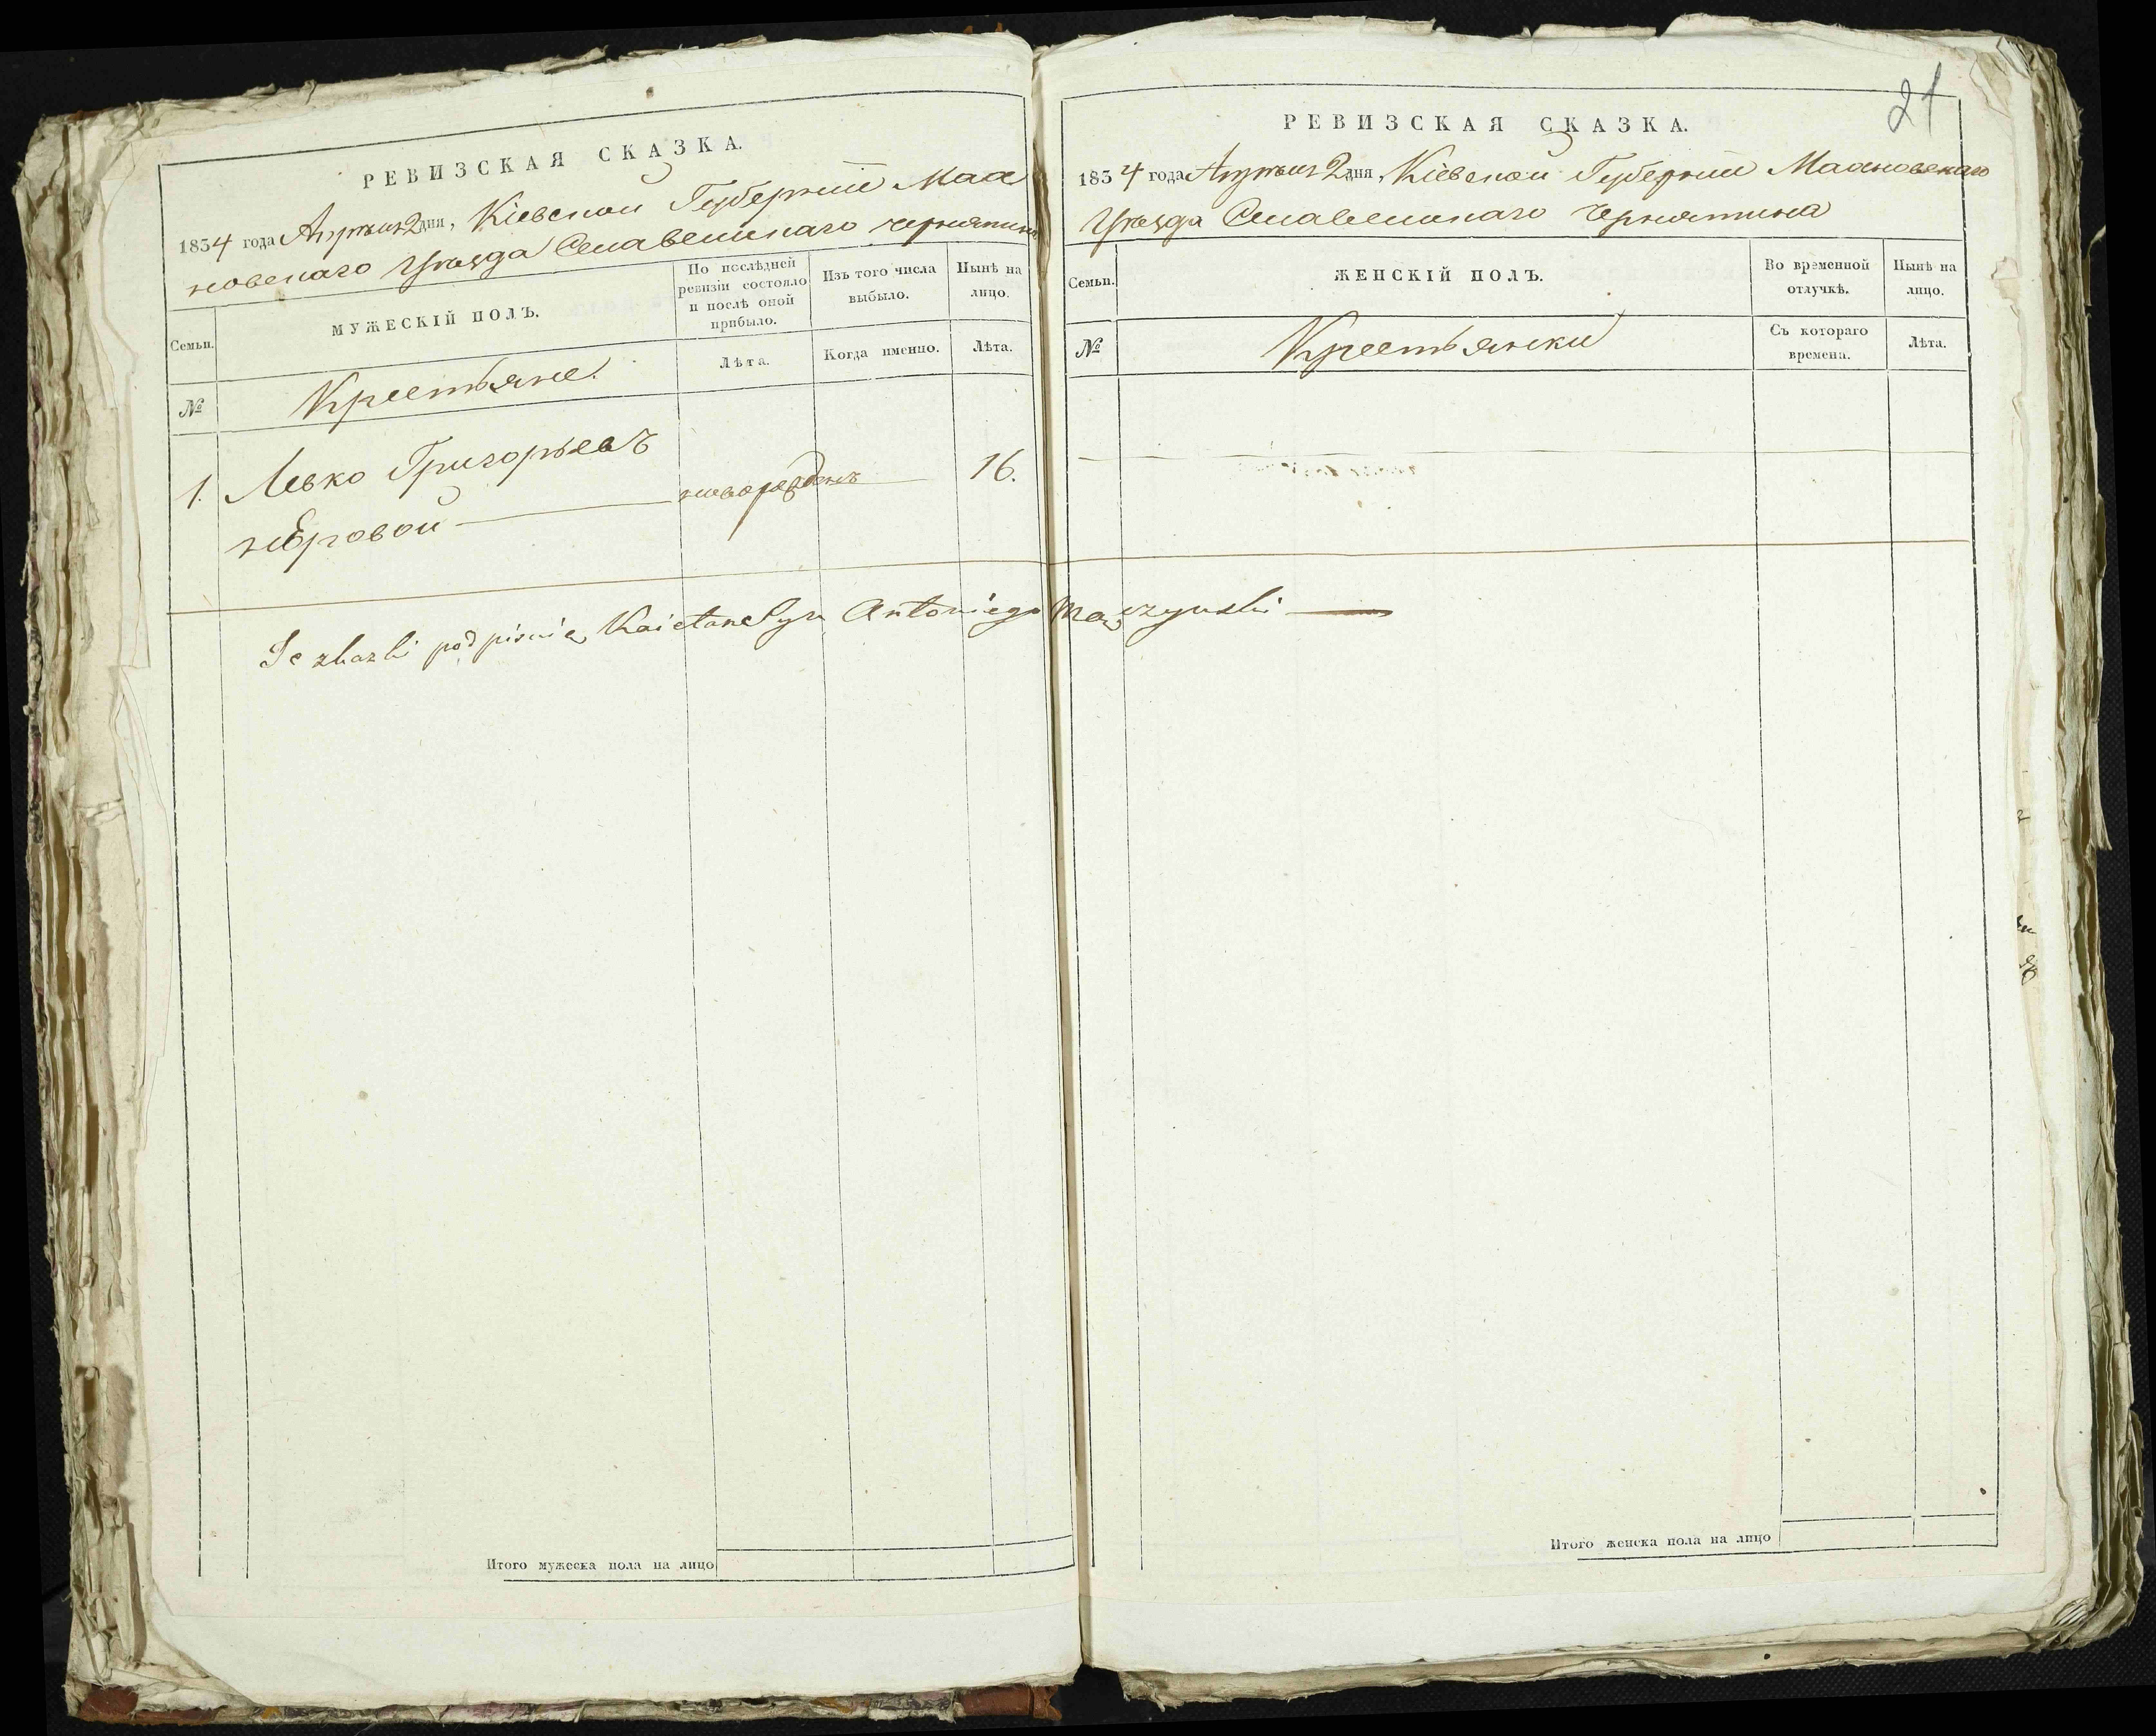 РЕВИЗСКАЯ СКАЗКА.
1834 года Апреля 2 дня, Кіевской Губерніи Мах
новскаго Уѣзда Села Чернятина
Семьи.
МУЖЕСКІЙ ПОЛЪ.
По послѣдней
ревизіи состояло
и послѣ оной
прибыло.
Изъ того числа
выбыло.
Нынѣ на
лицо.
№
Крестьяне.
Лѣта.
Когда именно.
Лѣта.
1. Левко Григорьевъ новорожденъ 16.
Se skazki podpisuie Kaietan Syn Antoniego
Итого мужеска пола на лицо
21
РЕВИЗСКАЯ СКАЗКА.
1834 года Апреля 2 дня, Кіевской Губерніи Махновскаго
Уѣзда Села Чернятина
Семьи.
ЖЕНСКІЙ ПОЛЪ.
Во временной
отлучкѣ.
Нынѣ на
лицо.
№
Крестьянки
Съ котораго
времени.
Лѣта.
Итого женска пола на лицо